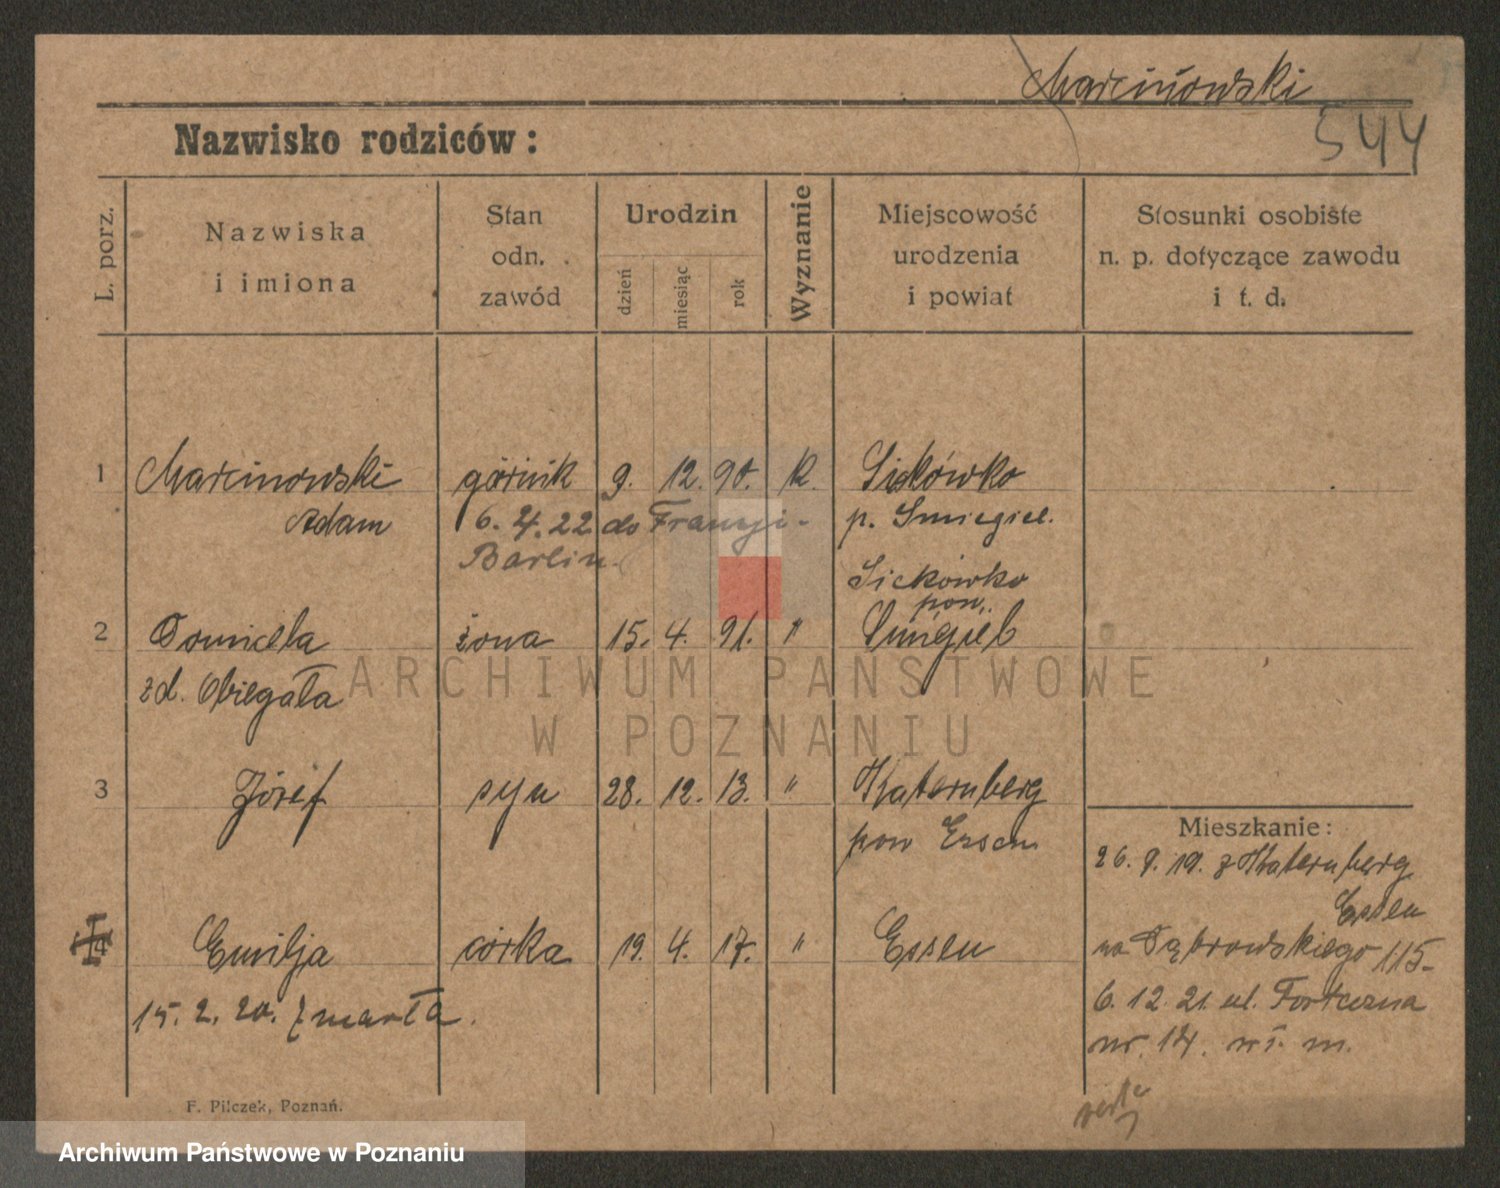 Marcinowski
544
Nazwisko rodziców:
L. porz.
Nazwiska
i imiona
Stan
odn.
zawód
Urodzin
dzień
miesiąc
rok
Wyznanie
Miejscowość
urodzenia
i powiat
Stosunki osobiste
n. p. dotyczące zawodu
i t. d.
1 Marcinowski górnik 9. 12. 90. K. Sickówko
Adam 6. 4. 22 do Francji - p. Smiegiel.
Barlin.
Sickówko
pow.
2 Domicela żona 15. 4. 91. " Śmigiel
zd. Obiegała
3 Józef syn 28. 12. 13. " Katernberg
pow Essen
Mieszkanie:
26. 9. 19. z Katernberg
Essen
4 Emilja córka 19. 4. 17. " Essen
na Dąbrowskiego 115-
15. 2. 20. Zmarła.
6. 12 21. ul. Forteczna
nr. 14. w m.
F. Pilczek, Poznań.
ARCHIWUM PAŃSTWOWE
W POZNANIU
Archiwum Państwowe w Poznaniu